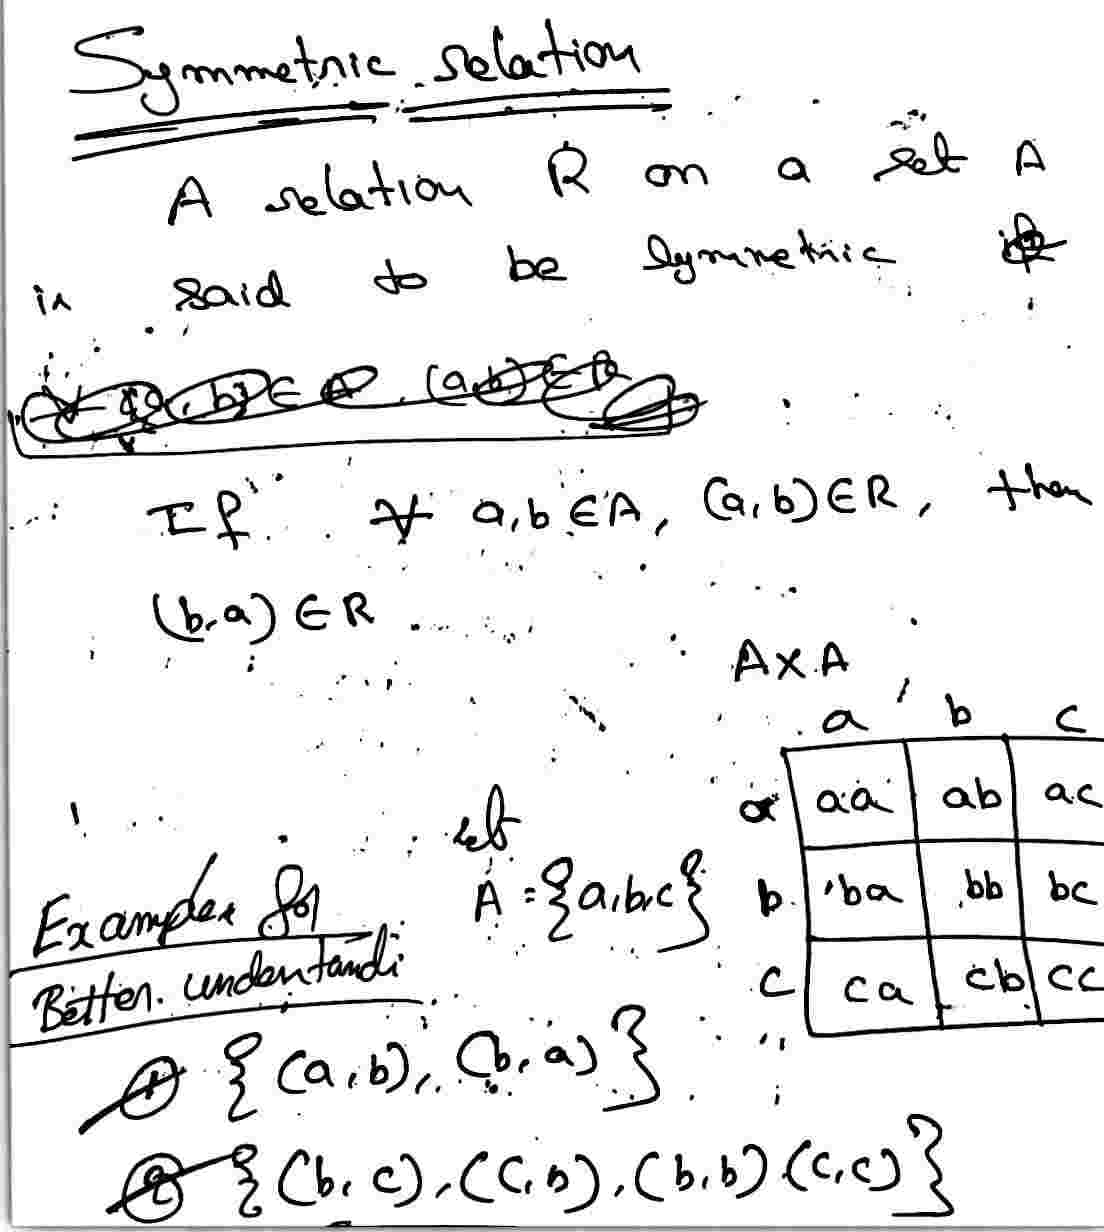 Symmetric relation
A relation R on a set A
is said to be Symmetric if
If ∀ a,b ∈ A, (a,b) ∈ R, then
(b,a) ∈ R
A×A
a b c
a aa ab ac
b ba bb bc
c ca cb cc
set
A = {a,b,c}
Examples for
Better understandi
① {(a,b), (b,a)}
② {(b,c), (c,b), (b,b) (c,c)}